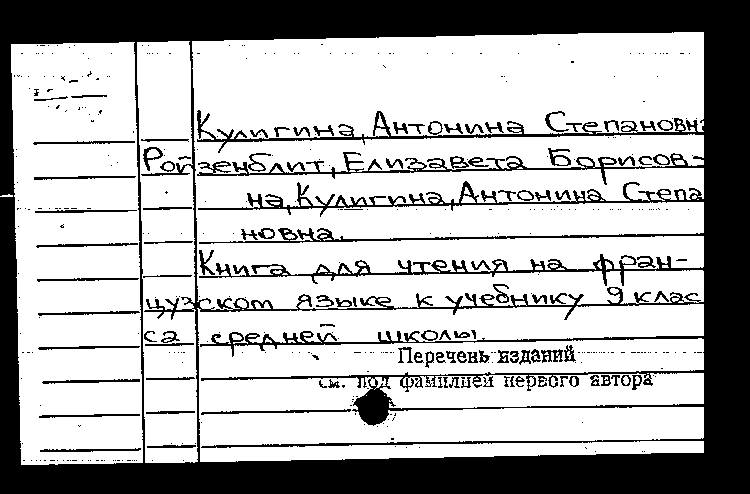 Кулигина, Антонина Степановна
Ройзенблит, Елизавета Борисов-
на, Кулигина, Антонина Степа
новна.
Книга для чтения на фран-
цузском языке к учебнику 9 клас
са средней школы.
Перечень изданий
см. под фамилией первого автора